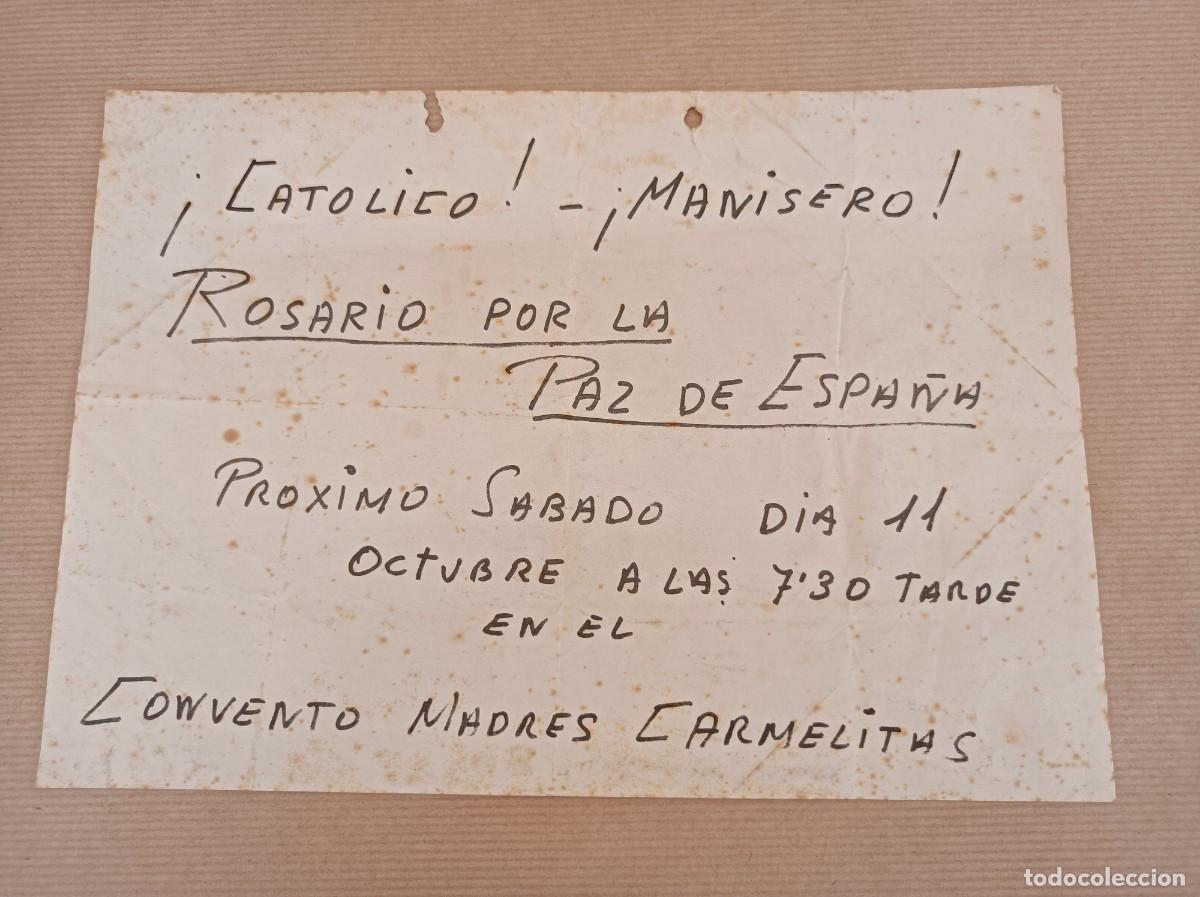 ¡CATOLICO! - ¡MANISERO!
ROSARIO POR LA
PAZ DE ESPAÑA
PROXIMO SABADO DiA 11
OCTUBRE A LAS 7'30 TARDE
EN EL
CONVENTO MADRES CARMELITAS
todocoleccion